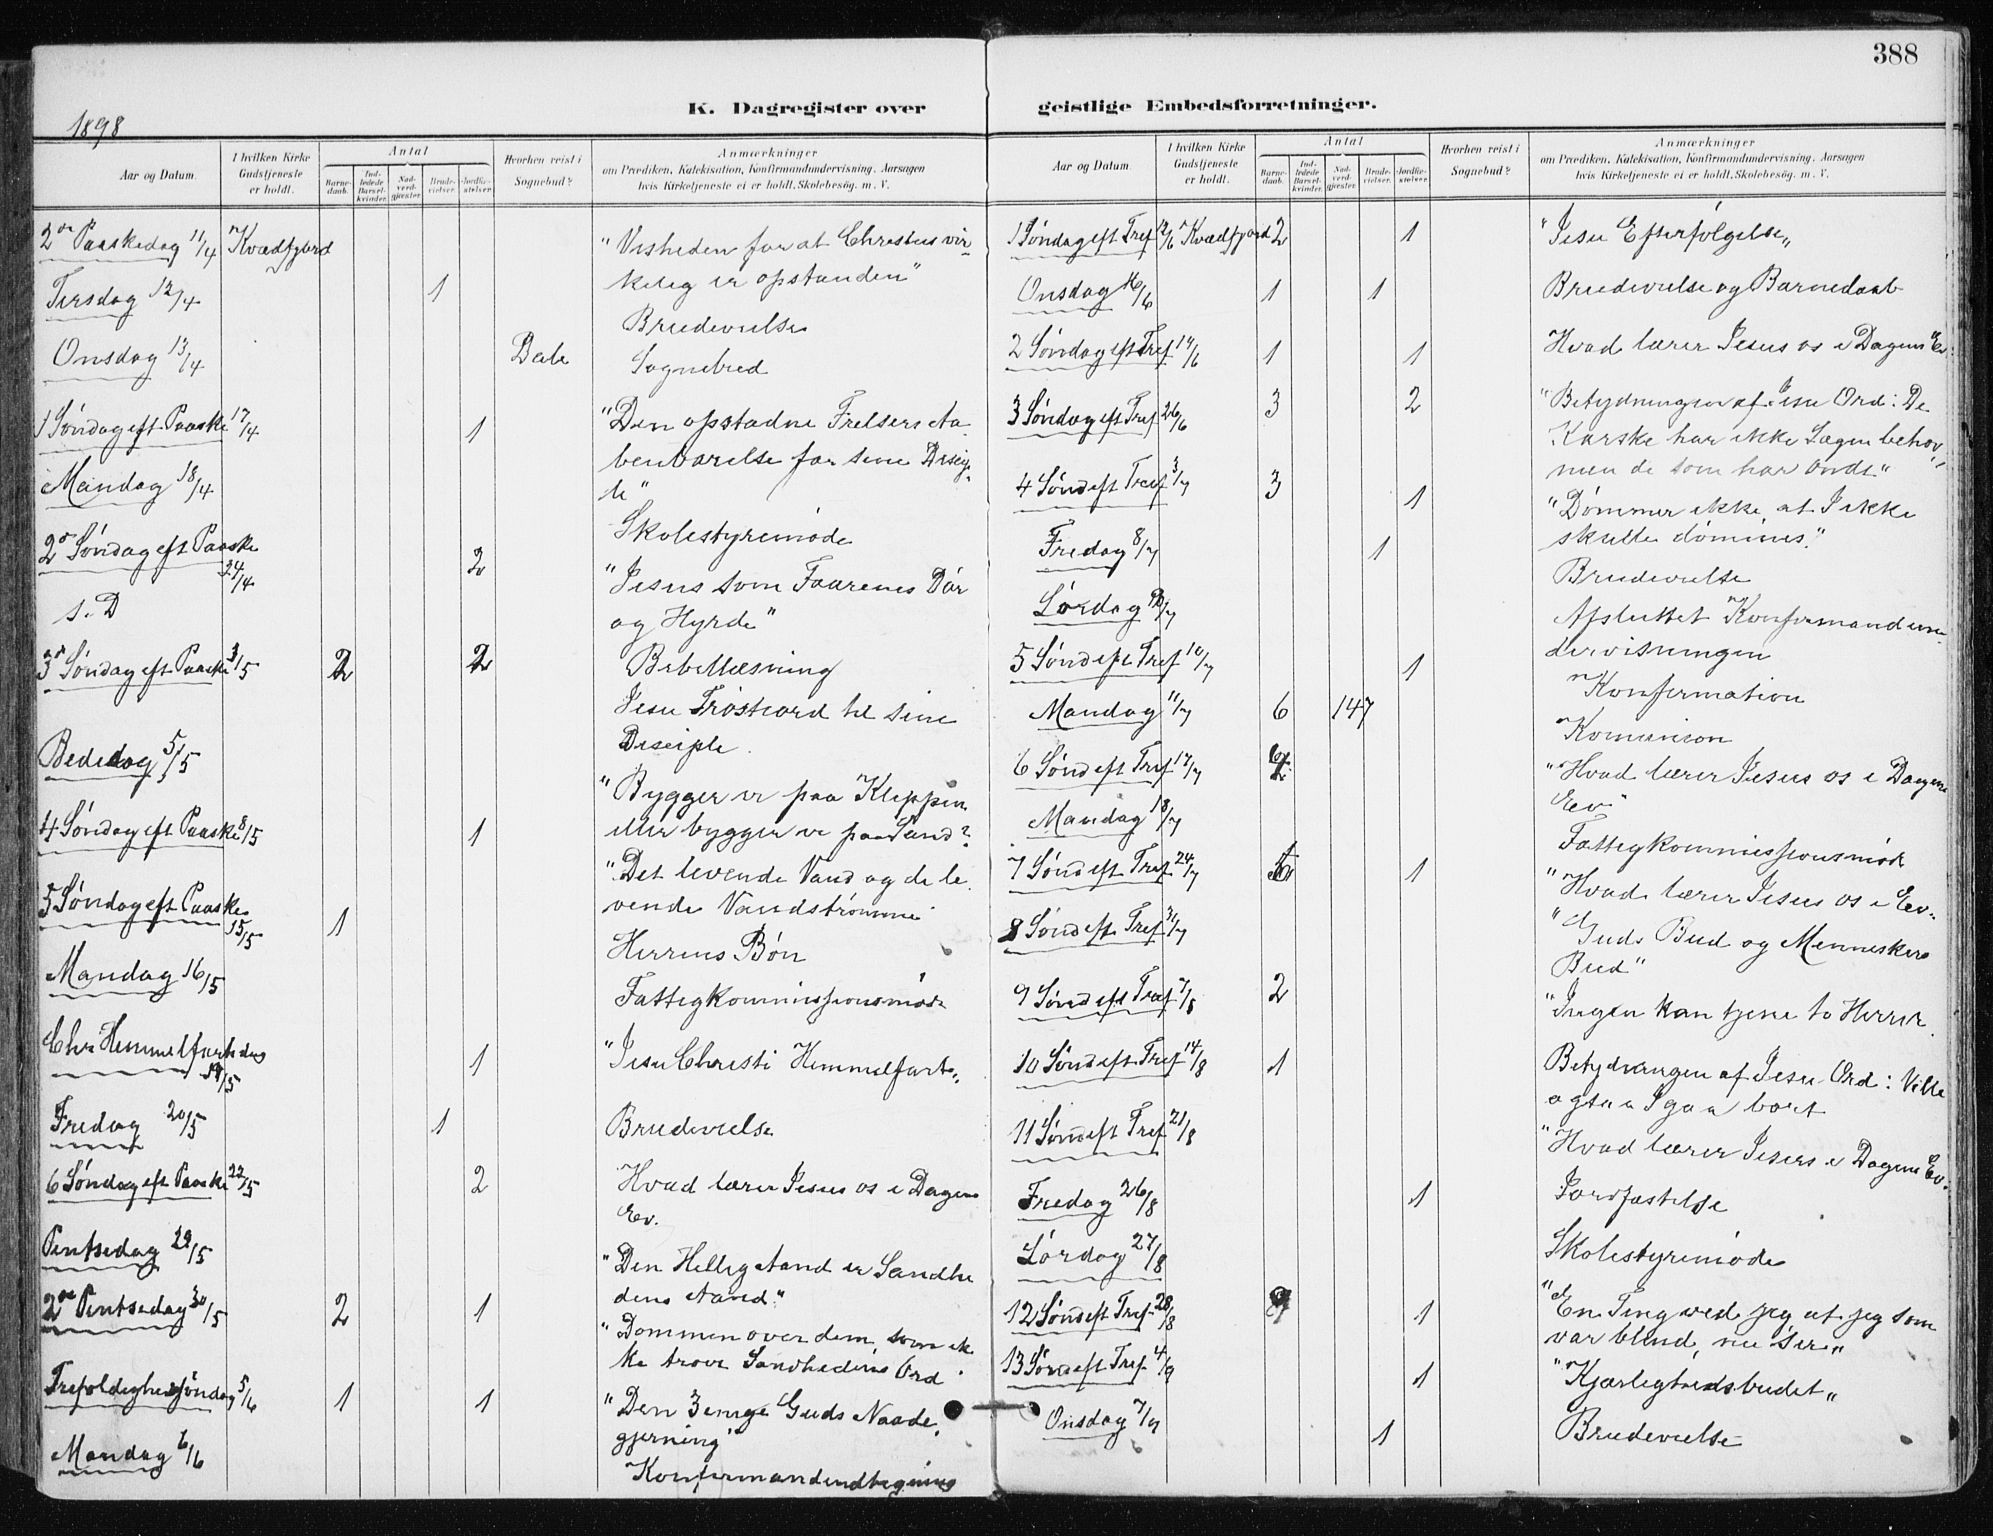 388
K. Dagregister over geistlige Embedsforretninger.
1898
Aar og Datum.
I hvilken Kirke Gudstjeneste er holdt.
Antal
Barnedaab.
Indledede Barselkvinder.
Nadverdgjester.
Brudevielser.
Jordfæstelser.
Hvorhen reist i Sognebud?
Anmærkninger
om Prædiken, Katekisation, Konfirmandundervisning. Aarsagen
hvis Kirketjeneste ei er holdt. Skolebesøg. m. V.
2den Paaskedag 11/4 Kvædfjord "Visheden for at Christus vir-
kelig er opstanden"
Tirsdag 12/4 1 Brudevielse
Onsdag 13/4 Sognebud
1 Søndag eft Paaske 17/4 1 "Den opstadne Frelsers Aa
benbarelse for sine Discip
le"
Mandag 18/4 Skolestyremøde
2den Søndag eft Paaske 24/4 2 "Jesus som Faarenes Dør
og Hyrde"
s. D Bibellæsning
3de Søndag eft Paaske 3/5 2 2 Jesu Trøsteord til sine
Disciple.
Bededag 5/5 "Bygger vi paa Klippen
eller bygger vi paa Sand?
4 Søndag eft Paaske 8/5 1 "Det levende Vand og de le
vende Vandstrømme
5 Søndag eft Paaske 15/5 1 Herrens Bøn
Mandag 16/5 Fattigkommissionsmøde
Chr Himmelfartsdag 19/5 1 "Jesu Christi Himmelfart"
Fredag 20/5 1 Brudevielse
6 Søndag eft Paaske 22/5 2 Hvad lærer Jesus os i Dagens
Ev.
Pintsedag 29/5 "Den Hellig Aand er Sandhe
dens Aand."
2den Pintsedag 30/5 2 1 "Dommen over dem, som ik
ke troer Sandhedens Ord
Trefoldighedssøndag 5/6 1 1 "Den 3 enige Guds Naade
gjerning"
Mandag 6/6 Konfirmandindtegning
Aar og Datum.
I hvilken Kirke Gudstjeneste er holdt.
Antal
Barnedaab.
Indledede Barselkvinder.
Nadverdgjester.
Brudevielser.
Jordfæstelser.
Hvorhen reist i Sognebud?
Anmærkninger
om Prædiken, Katekisation, Konfirmandundervisning. Aarsagen
hvis Kirketjeneste ei er holdt. Skolebesøg. m. V.
1 Søndag eft Tref 12/6 Kvædfjord 2 1 "Jesu Efterfølgelse"
Onsdag 16/6 1 1 Brudevielse og Barnedaab
2 Søndag eft Tref 19/6 1 1 Hvad lærer Jesus os i Dagens Ev.
3 Søndag eft Tref 26/6 3 2 "Betydningen af Jesu Ord: De
Karske har ikke Lægen behov,
men de som har Ondt"
4 Sønd eft Tref 3/7 3 1 "Dømmer ikke, at I ikke
skulle dømmes."
Fredag 8/7 1 Brudevielse
Lørdag 9/7 Afsluttet Konfirmandun-
dervisningen
5 Sønd eft Tref 10/7 1 Konfirmation
Mandag 11/7 6 147 Komunion
6 Sønd eft Tref 17/7 "Hvad lærer Jesus os i Dagens
Ev"
Mandag 18/7 Fattigkommissionsmøde
7 Sønd eft Tref 24/7 1 "Hvad lærer Jesus os i Ev.
8 Sønd eft Tref 31/7 "Guds Bud og Menneskers
Bud"
9 Sønd eft Tref 7/8 2 "Ingen kan tjene to Herrer.
10 Sønd eft Tref 14/8 1 Betydningen af Jesu Ord: Ville
ogsaa I gaa bort
11 Sønd eft Tref 21/8 "Hvad lærer Jesus i Dagens Ev.
Fredag 26/8 1 Jordfæstelse
Lørdag 27/8 Skolestyremøde
12 Sønd eft Tref 28/8 1 "En Ting ved jeg, at jeg som
var blind, nu ser"
13 Sønd eft Tref 4/9 1 "Kjærlighedsbudet"
Onsdag 7/9 1 Brudevielse